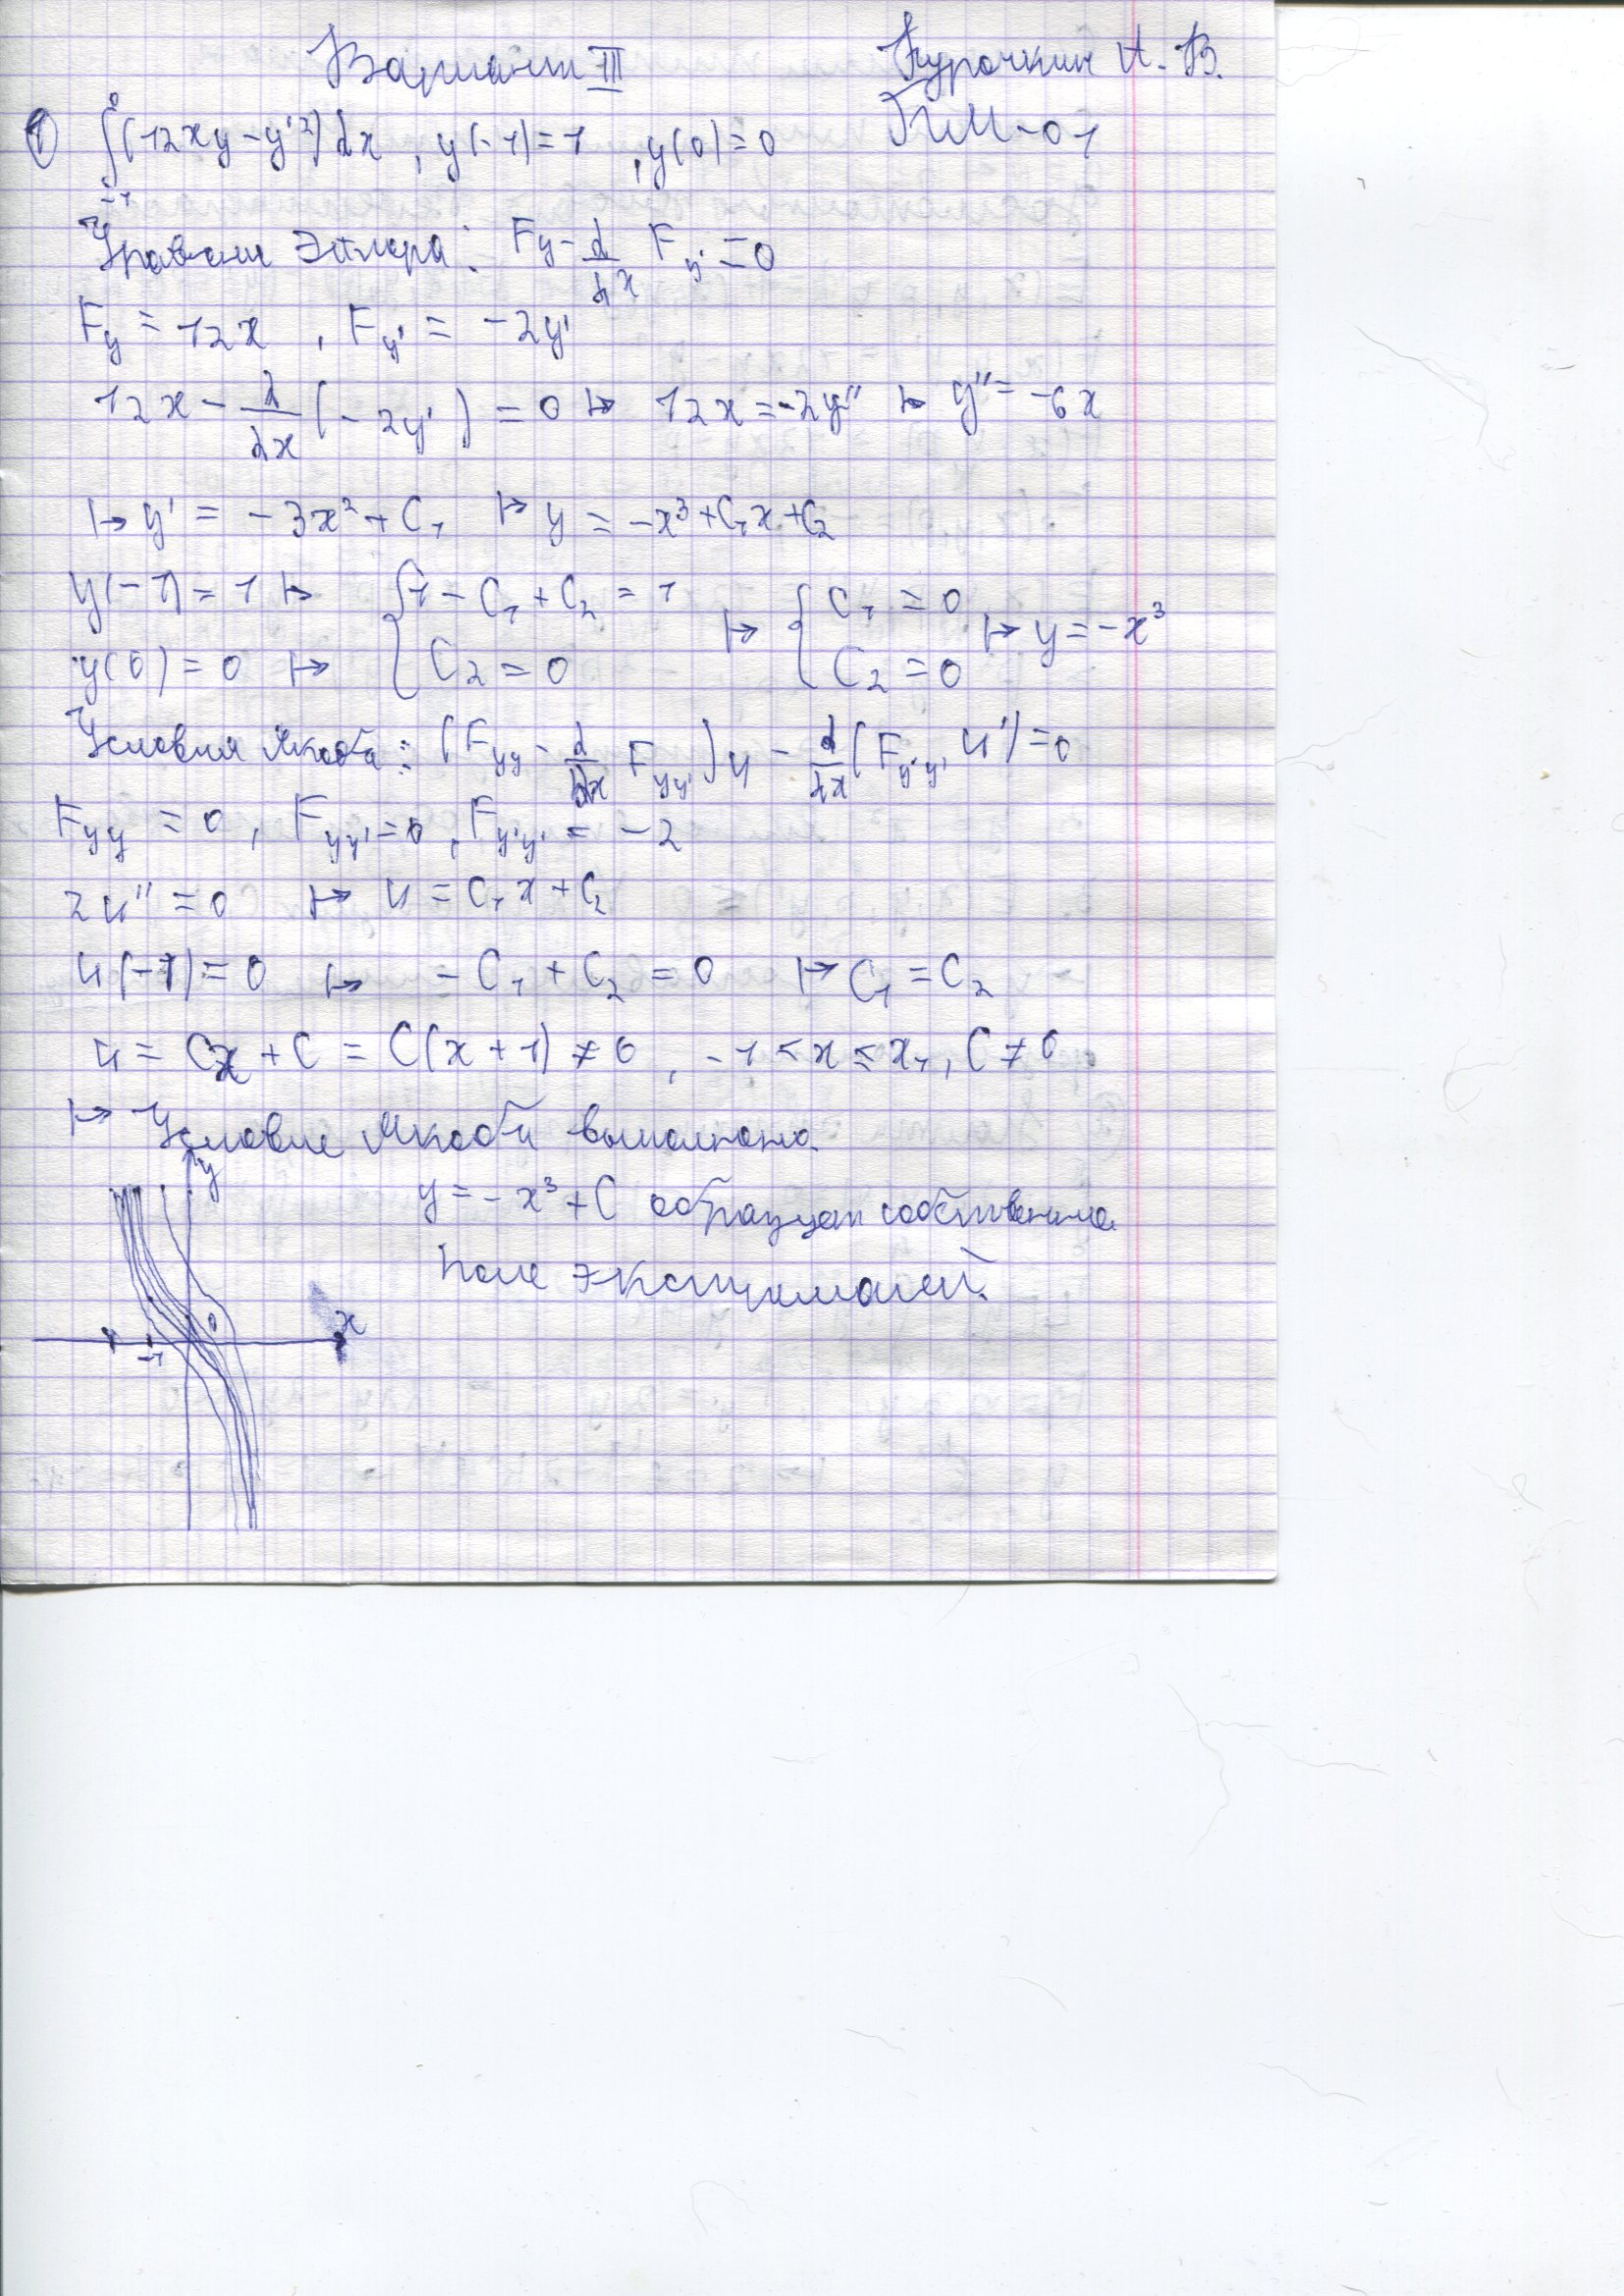 Вариант III
Курочкин А. В.
ПМ-01
① ∫₋₁⁰ (12xy - y'²) dx , y(-1) = 1 , y(0) = 0
Уравнение Эйлера: F_y - d/dx F_y' = 0
F_y = 12x , F_y' = -2y'
12x - d/dx (-2y') = 0 ↦ 12x = -2y'' ↦ y'' = -6x
↦ y' = -3x² + C₁ ↦ y = -x³ + C₁x + C₂
y(-1) = 1 ↦ { 1 - C₁ + C₂ = 1 ↦ { C₁ = 0 ↦ y = -x³
y(0) = 0 ↦ { C₂ = 0 { C₂ = 0
Условия Якоби: (F_yy - d/dx F_yy') u - d/dx (F_y'y' u') = 0
F_yy = 0 , F_yy' = 0 , F_y'y' = -2
2u'' = 0 ↦ u = C₁x + C₂
u(-1) = 0 ↦ -C₁ + C₂ = 0 ↦ C₁ = C₂
u = Cx + C = C(x + 1) ≠ 0 , -1 < x ≤ x₁ , C ≠ 0
↦ Условие Якоби выполнено.
y = -x³ + C образует собственное
поле экстремалей.
y
x
0
-1